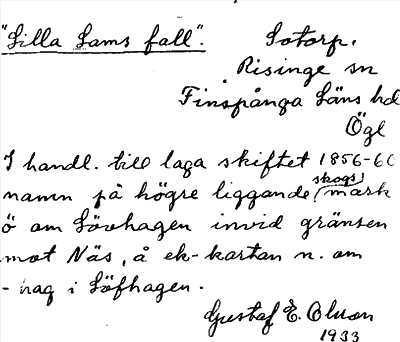 "Lilla Lams fall". Sotorp.
Risinge sn
Finspånga Läns hd
Ögl
I handl. till laga skiftet 1856-60
namn på högre liggande (skogs)mark
ö om Lövhagen invid gränsen
mot Näs, å ek-kartan n. om
- hag i Löfhagen.
Gustaf E. Olson
1933